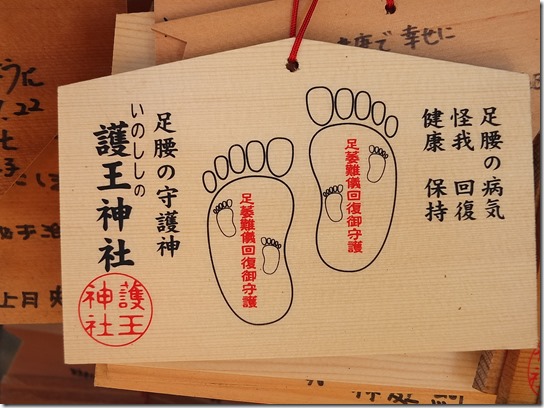 足腰の病気
怪我 回復
健康 保持
足萎難儀回復御守護
足萎難儀回復御守護
足腰の守護神
いのししの
護王神社
護王
神社
康で 幸せに
うに
.22
上日